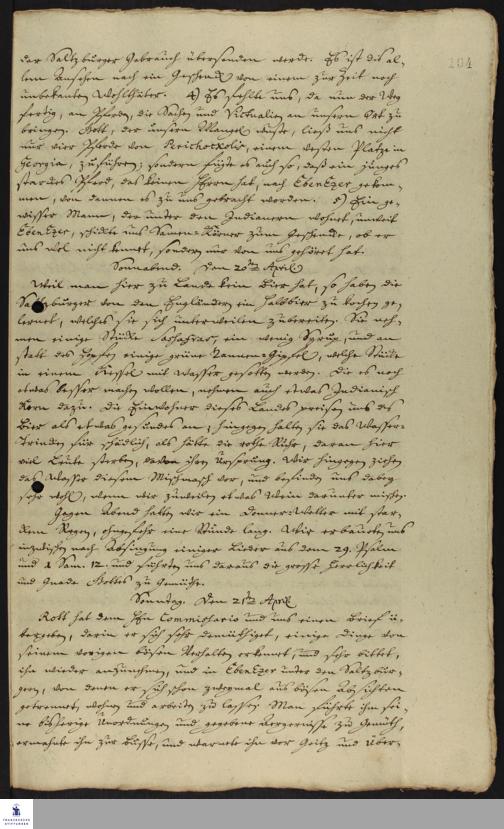 104
der Saltzburger Gebrauch übersenden werde. Es ist dis al-
lem Ansehen nach ein Geschenck von einem zur Zeit noch
unbekanten Wohlthäter. 4) Es fehlte uns, da nun der Weg
fertig, an Pferden, die Sachen und Victualien an unsern Ort zu
bringen. Gott, der unsern Mangel wuste, ließ uns nicht
nur vier Pferde von einem vesten Platze in
Georgia, zuführen; sondern fügte es auch so, daß ein junges
starckes Pferd, das keinen Herrn hat, nach EbenEzer gekom-
men, von dannen es zu uns gebracht worden. 5) Ein ge-
wisser Mann, der unter den Indianern wohnet, unweit
EbenEzer, schickte uns Samen-Körner zum Geschencke, ob er
uns wol nicht kennet, sondern nur von uns gehöret hat.
Sonnabend. Den 20ten April
Weil man hier zu Lande kein Bier hat, so haben die
Saltzburger von den Engländern ein Halbbier zu kochen ge-
lernet, welches sie sich unterweilen zubereiten. Sie neh-
men einige Stücke Sassafras, ein wenig Syrup, und an
statt des Hopfen einige grüne Tannen-Gipfel, welche Stücke
in einem Kessel mit Wasser gesotten werden. Die es noch
etwas besser machen wollen, nehmen auch etwas Indianisch
Korn dazu. Die Einwohner dieses Landes preisen uns des
Bier als etwas gesundes an; hingegen halten sie das Wasser-
Trincken für schädlich, als hätte die rothe Ruhr, daran hier
viel Leute sterben, davon ihren Ursprung. Wir hingegen ziehen
das Wasser diesem Mischmasch vor, und befinden uns dabey
sehr wohl, wenn wir zuweilen etwas Wein darunter mischen.
Gegen Abend hatten wir ein Donner-Wetter mit star-
ckem Regen, ohngefehr eine Stunde lang. Wir erbaueten uns
inzwischen nach Absingung einiger Lieder aus dem 29. Psalm
und 1 Sam. 12. und führten uns daraus die grosse Herrlichkeit
und Gnade Gottes zu Gemüthe.
Sonntag. Den 21ten April
Rott hat dem Hn Commissario und uns einen Brief ü-
bergeben, darin er sich sehr demüthiget, einige Dinge von
seinem vorigen bösen Verhalten erkennet, und sehr bittet,
ihn wieder anzunehmen, und in EbenEzer unter den Saltzbur-
gern, von denen er sich schon zweymal aus bösen Absichten
getrennet, wohnen und arbeiten zu lassen. Man führte ihm sei-
ne bisherige Unordnungen und gegebene Aergernisse zu Gemüth,
ermahnte ihn zur Busse, und warnete ihn vor Geitz und Über-
FRANCKESCHE
STIFTUNGEN